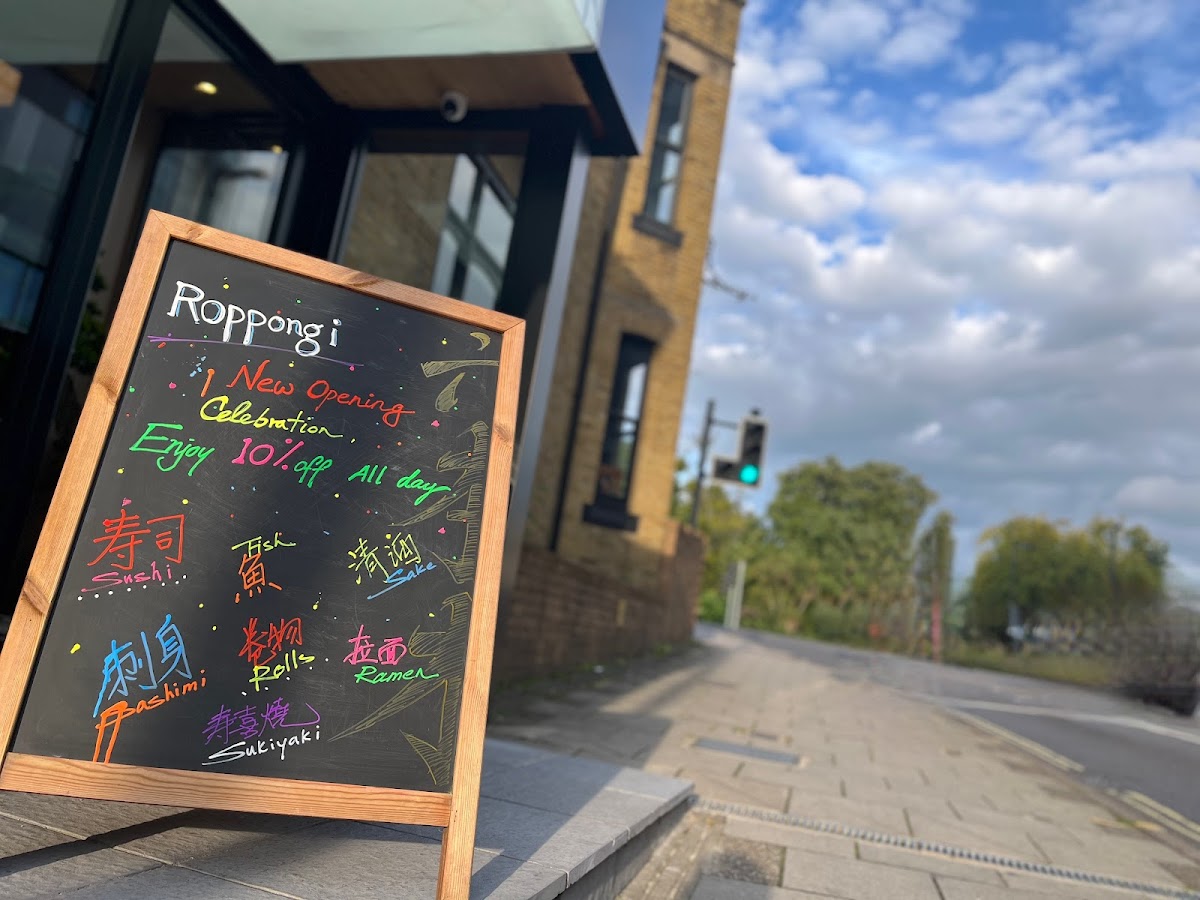 Roppongi
New Opening
Celebration.
Enjoy 10% off All day
寿司
Sushi
Fish
魚
清酒
Sake
刺身
Sashimi
卷物
Rolls
拉面
Ramen
寿喜燒
Sukiyaki